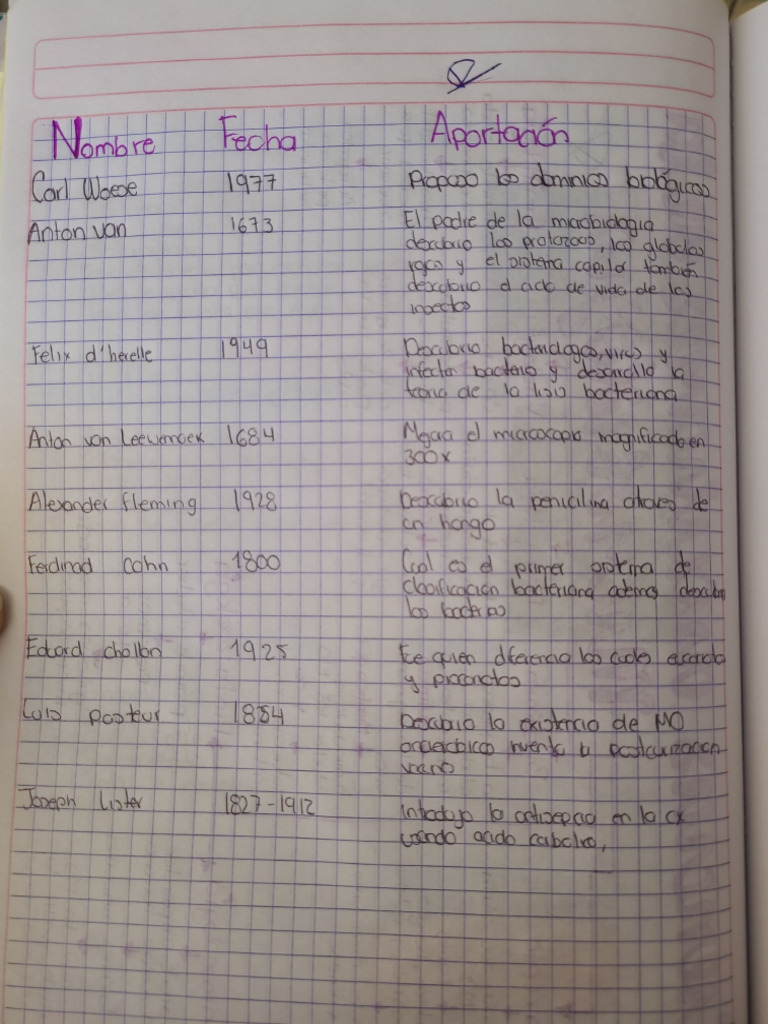 Nombre Fecha Aportación
Carl Woese 1977 Propuso los dominios biológicos
Anton van 1673 El padre de la microbiologia
descubrio los protozoos, los globulos
rojos y el sistema capilar también
descubrio el ciclo de vida de los
insectos
Felix d'herelle 1949 Descubrio bacteriologos, virus y
infectan bacterio y desarrollo la
teoria de la lisis bacteriana
Anton van Leewenoek 1684 Mejora el microscopio magnificado en
300x
Alexander fleming 1928 Descubrio la penicilina atraves de
un hongo
Ferdinad Cohn 1800 es el primer sistema de
clasificación bacteriana ademas
las bacterias
Edoard chatton 1925 Fue quien diferencio las
y
Luis pasteur 1854 Descubrio la existencia de MO
anaerobicos invento la pasteurización
Joseph Lister 1827-1912 Introdujo la antisepcia en la cx
usando acido